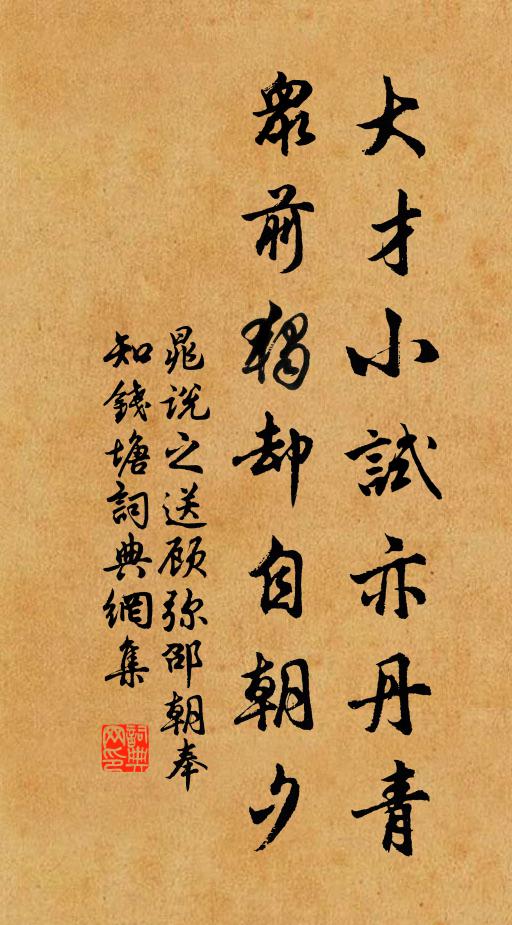 大才小試亦丹青
眾前獨却自朝夕
晁說之送顾弥邵朝奉
知錢塘詞典網集
詞典
网印